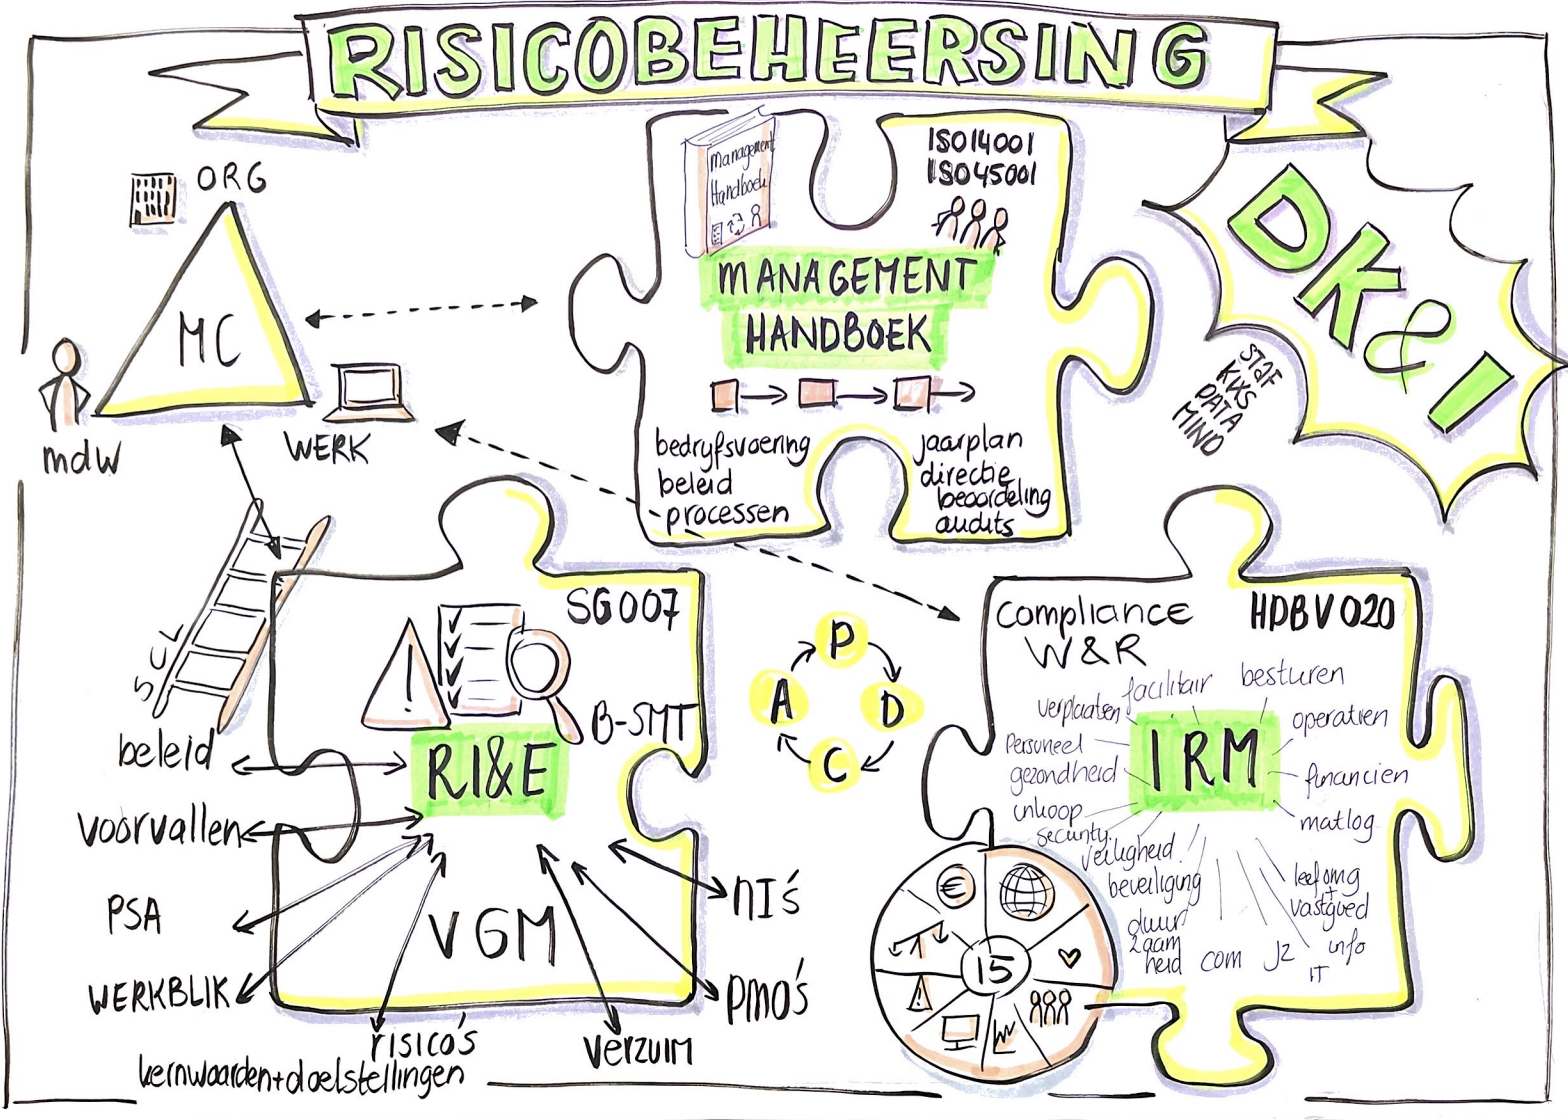 RISICOBEHEERSING
ORG
MC
mdw
WERK
management
Handboek
ISO14001
ISO45001
MANAGEMENT
HANDBOEK
bedryfsvoering
beleid
processen
jaarplan
directie
beoordeling
audits
DK&I
STAF
KIXS
DATA
MIND
SCL
SG007
B-SMT
RI&E
VGM
beleid
voorvallen
PSA
WERKBLIK
risico's
kernwaarden+doelstellingen
verzuim
PMO's
NI's
P
D
C
A
Compliance
W&R
HDBV020
IRM
facilitair
besturen
verplaatsen
operatiën
Personeel
gezondheid
financiën
inkoop
matlog
security
veiligheid
beveiliging
leefomg
+
vastgoed
duur
zaam
heid
com
JZ
info
IT
€
15